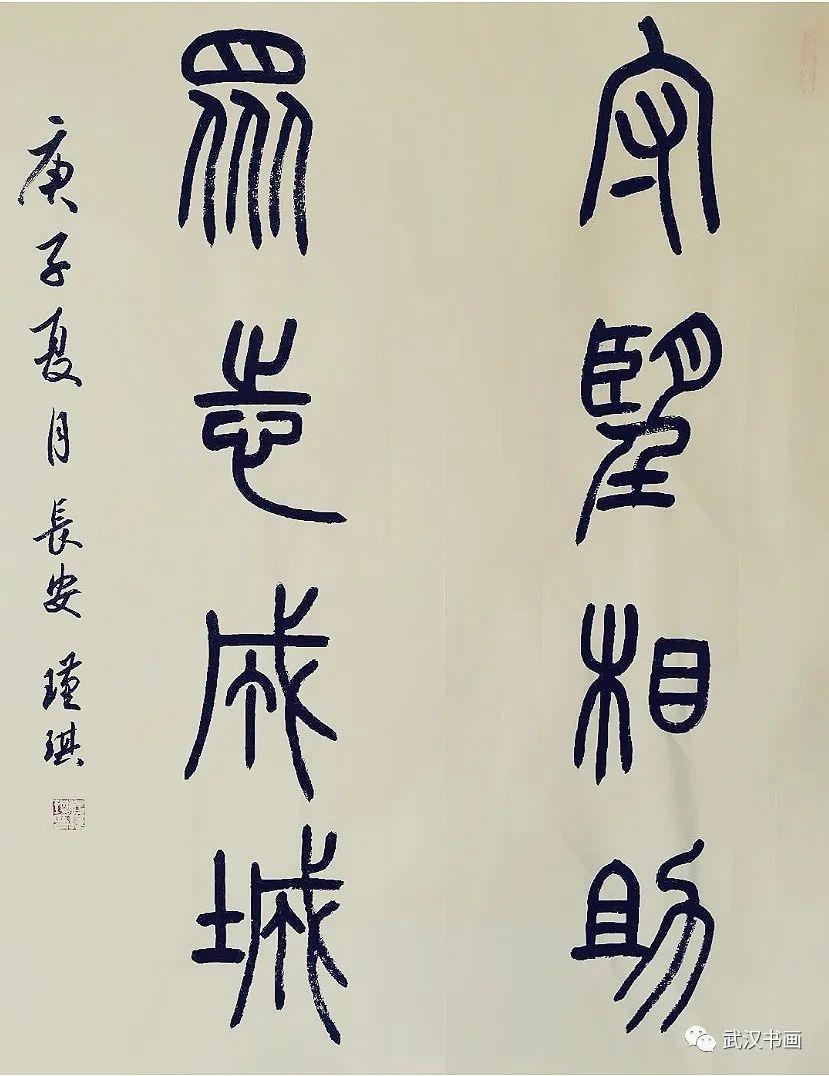 守望相助
眾志成城
庚子夏月長安瑾琪
武汉书画